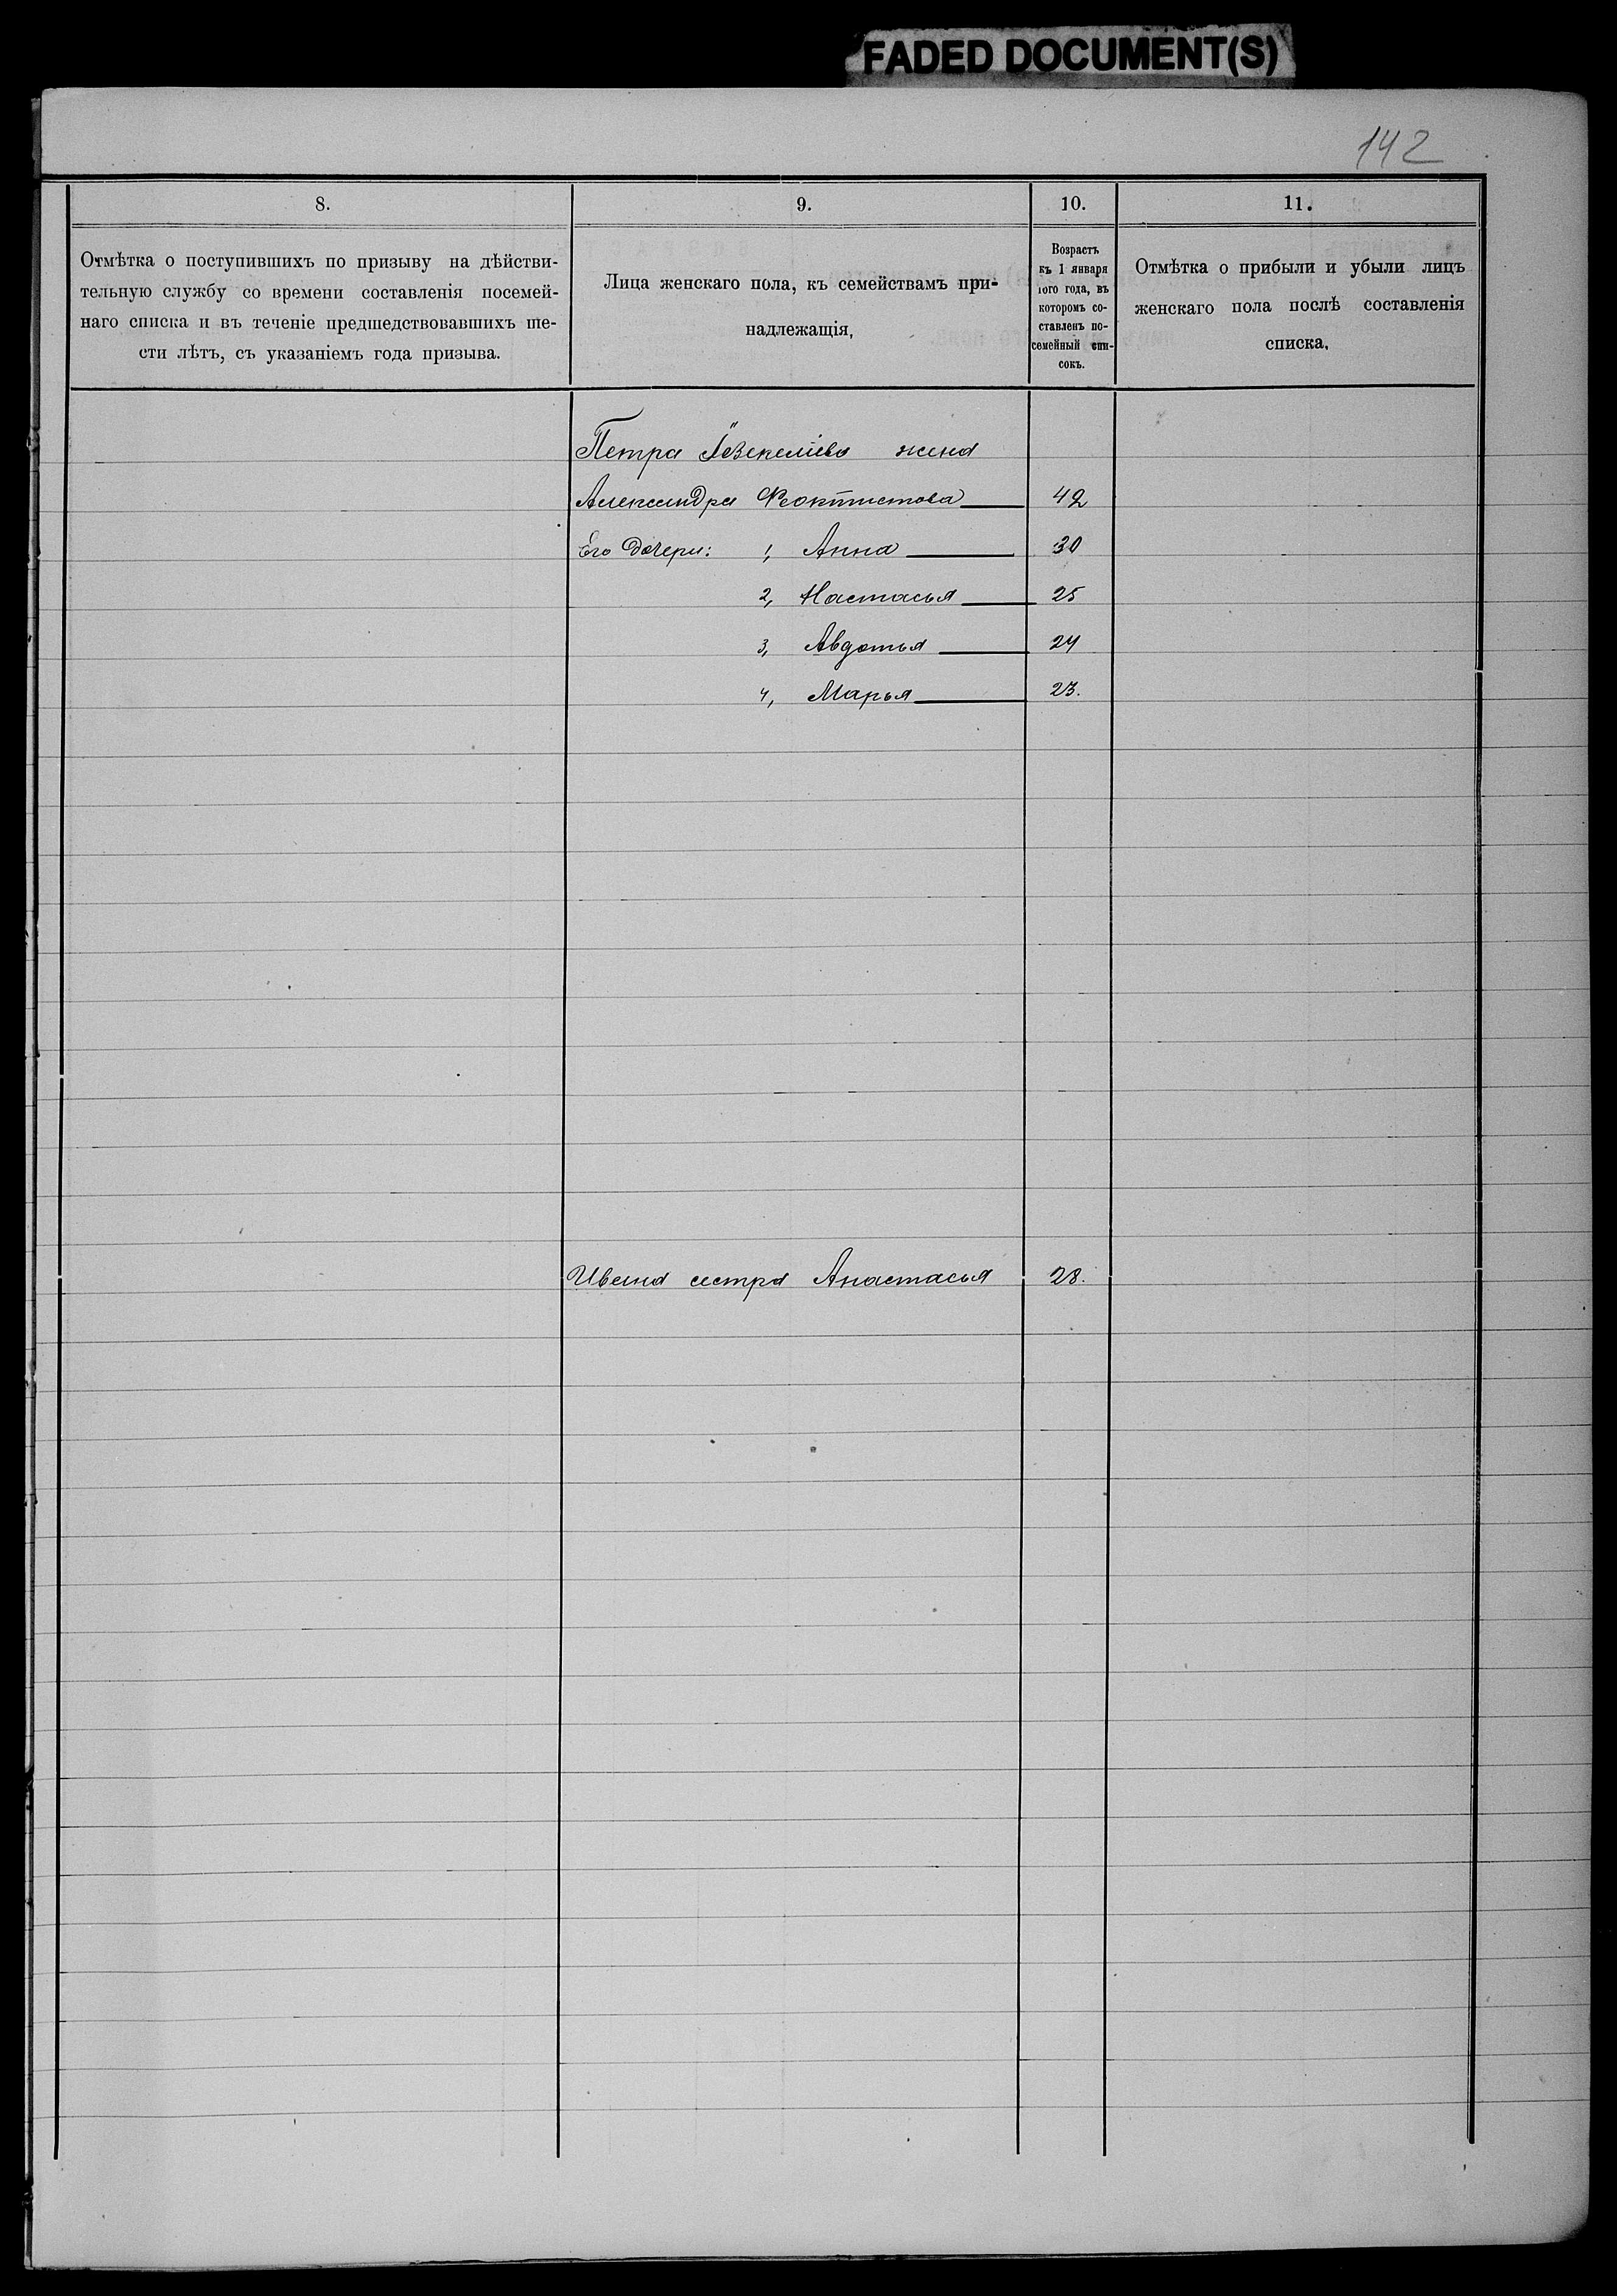 FADED DOCUMENT(S)
142
8.
9.
10.
11.
Отмѣтка о поступившихъ по призыву на дѣйстви-
тельную службу со времени составленія посемей-
наго списка и въ теченіе предшедствовавшихъ ше-
сти лѣтъ, съ указаніемъ года призыва.
Лица женскаго пола, къ семействамъ при-
надлежащія,
Возрастъ
къ 1 января
того года, въ
которомъ со-
ставленъ по-
семейный спи-
сокъ.
Отмѣтка о прибыли и убыли лицъ
женскаго пола послѣ составленія
списка.
Петра жена
Александра Феоктистова 42
Его дочери: 1, Анна 30
2, Настасья 25
3, Авдотья 24
4, Марья 23.
сестра Анастасья 28.